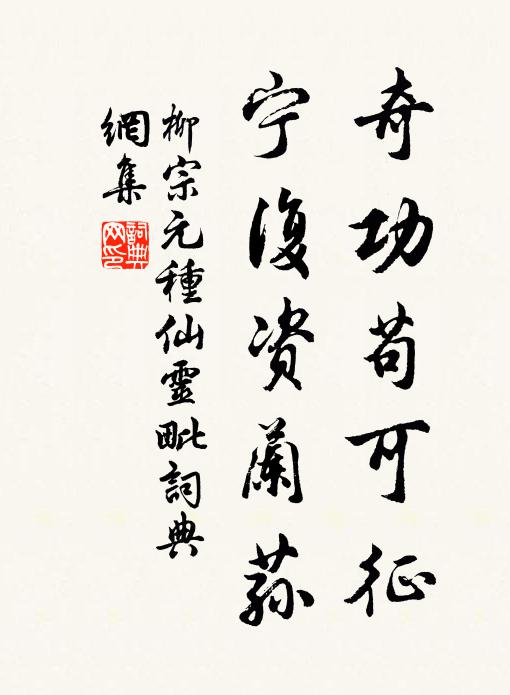 奇功苟可征
宁復资蘭荪
柳宗元種仙靈毗詞典
網集
詞典网印